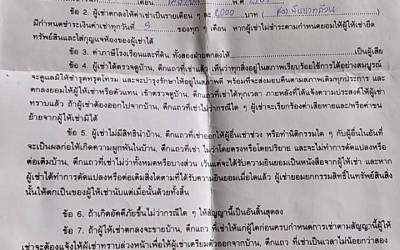 เดือน พ.ศ.
ข้อ 2. ผู้เช่าตกลงให้ค่าเช่าเป็นรายเดือน ๆ ละ 2000 บาท (สองพันบาทถ้วน
มีกำหนดชำระเงินค่าเช่าทุกวันที่ 5 ของทุก ๆ เดือน หากผู้เช่าไม่ชำระตามกำหนดยอมให้ผู้ให้เช่ายึด
ทรัพย์สินและใส่กุญแจห้องของผู้เช่าได้
ข้อ 3. ค่าภาษีโรงเรือนและที่ดิน ทั้งสองฝ่ายตกลงให้ เป็นผู้เสีย
ข้อ 4. ผู้เช่าได้ตรวจดูบ้าน, ตึกแถวที่เช่าแล้ว เห็นว่าทุกสิ่งอยู่ในสภาพเรียบร้อยใช้การได้อย่างสมบูรณ์
จะดูแลมิให้ชำรุดทรุดโทรม และจะบำรุงรักษาให้อยู่ในสภาพดี พร้อมที่จะส่งมอบคืนตามสภาพเดิมทุกประการ และ
ตกลงยอมให้ผู้ให้เช่าหรือตัวแทน เข้าตรวจดูบ้าน, ตึกแถวที่เช่าได้ทุกเวลา ภายหลังที่ได้แจ้งความประสงค์ให้ผู้เช่า
ทราบแล้ว ถ้าผู้เช่าต้องออกไปจากบ้าน, ตึกแถวที่เช่าไม่ว่ากรณีใด ๆ ผู้เช่าจะเรียกร้องค่าเสียหายและหรือค่าขน
ย้ายจากผู้ให้เช่ามิได้
ข้อ 5. ผู้เช่าไม่มีสิทธินำบ้าน, ตึกแถวที่เช่าออกให้ผู้อื่นเช่าช่วง หรือทำนิติกรรมใด ๆ กับผู้อื่นในอันที่
จะเป็นผลก่อให้เกิดความผูกพันในบ้าน, ตึกแถวที่เช่า ไม่ว่าโดยตรงหรือโดยปริยาย และจะไม่ทำการดัดแปลงหรือ
ต่อเติมบ้าน, ตึกแถวที่เช่าไม่ว่าทั้งหมดหรือบางส่วน เว้นแต่จะได้รับความยินยอมเป็นหนังสือจากผู้ให้เช่า และหาก
ผู้เช่าได้ทำการดัดแปลงหรือต่อเติมสิ่งใดตามที่ได้รับความยินยอมเมื่อใด ผู้เช่ายอมยกกรรมสิทธิ์ในทรัพย์สินสิ่ง
นั้นให้ตกเป็นของผู้ให้เช่านับแต่เมื่อนั้นด้วยทั้งสิ้น
ข้อ 6. ถ้าเกิดอัคคีภัยขึ้นไม่ว่ากรณีใด ๆ ให้สัญญานี้เป็นอันสิ้นสุดลง
ข้อ 7. ถ้าผู้ให้เช่าตกลงจะขายบ้าน, ตึกแถวที่เช่าให้แก่ผู้ใดก่อนครบกำหนดการเช่าตามสัญญานี้ผู้ให้
เช่าจะต้องแจ้งให้ผู้เช่าทราบล่วงหน้าเพื่อให้ผู้เช่าเตรียมตัวออกจากบ้าน, ตึกแถวที่เช่าเป็นเวลาไม่น้อยกว่าสอง